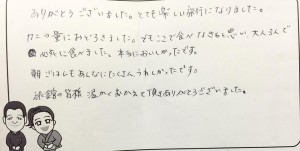 ありがとうございました。とても楽しい旅行になりました。
カニの量におどろきました。でもここで食べなきゃと思い 大人3人で
必死に食べました。本当においしかったです。
朝ごはんもあんなにたくさん、うれしかったです。
旅館の皆様 温かくおむかえして頂きありがとうございました。